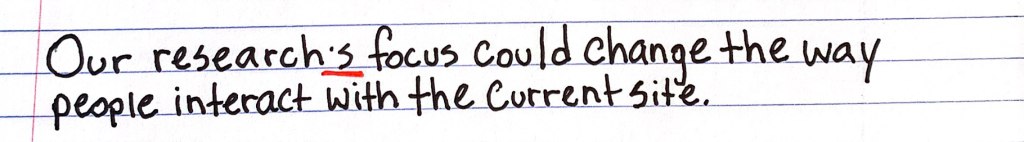 Our research's focus could change the way
people interact with the current site.